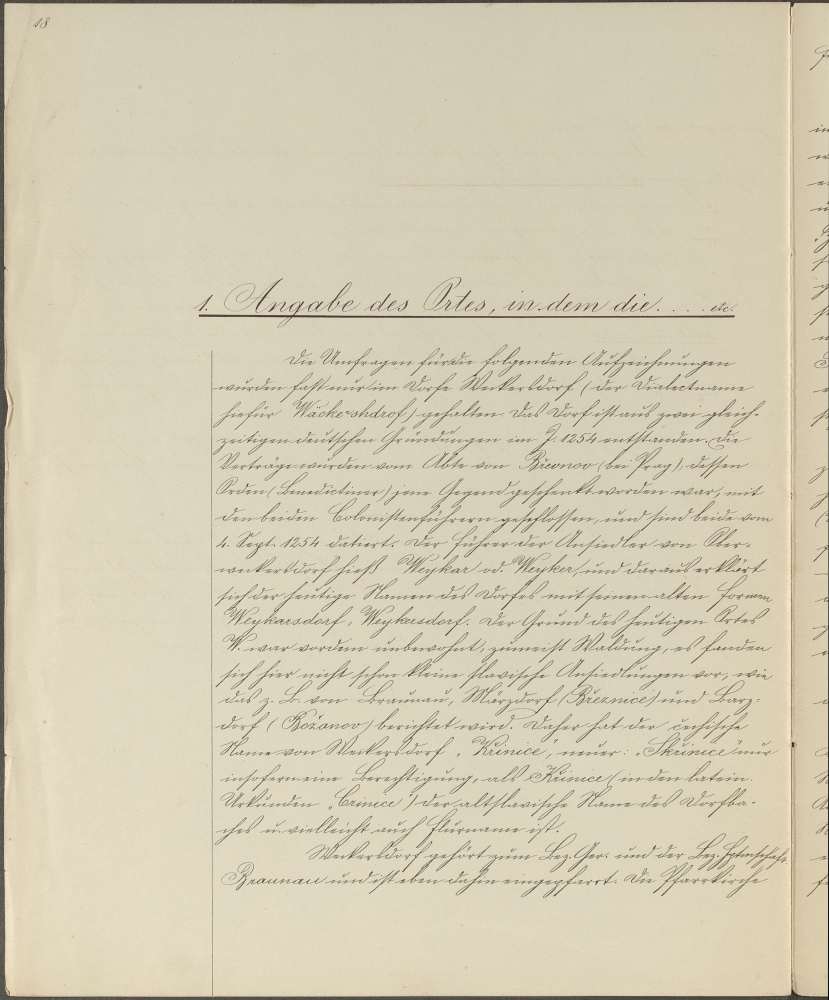 18
1. Angabe des Ortes, in dem die.... etc.
Die Umfragen für die folgenden Aufzeichnungen
wurden fast nur im Dorfe Weckersdorf (der Dialectname
hiefür Wäckeshdrof) gehalten. Das Dorf ist aus zwei gleich-
zeitigen deutschen Gründungen im J. 1254 entstanden. Die
Verträge wurden vom Abte von Břevnov (bei Prag), dessen
Orden (Benedictiner) jene Gegend geschenkt worden war, mit
den beiden Colonistenführern geschlossen, und sind beide vom
4. Sept. 1254 datiert. Der Führer der Ansiedler von Ober-
weckersdorf hieß Weykar od. Weyker, und daraus erklärt
sich der heutige Namen des Dorfes mit seinen alten Formen
Weykarsdorf, Weykersdorf. Der Grund des heutigen Ortes
W. war vordem unbewohnt, zumeist Waldung, es fanden
sich hier nicht schon kleine slavische Ansiedlungen vor, wie
das z. B. von Braunau, Märzdorf (Březnice) und Barz-
dorf (Božanov) berichtet wird. Daher hat der čechische
Name von Weckersdorf „Křinice", neuer: „Skřinice" nur
insofern eine Berechtigung, als Křinice (in den latein.
Urkunden „Crinice") der altslavische Name des Dorfba-
ches u. vielleicht auch Flurname ist.
Weckersdorf gehört zum Bez. Ger. und der Bez. Hptmschaft
Braunau und ist eben dahin eingepfarrt. Die Pfarrkirche